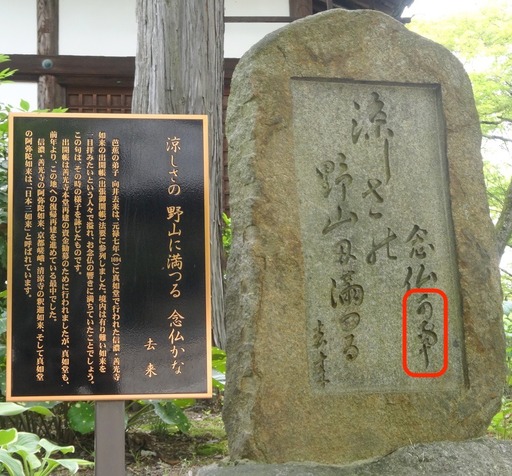 涼しさ能
野山耳満つる
念仏可那
去来
涼しさの 野山に満つる 念仏かな
去来
芭蕉の弟子 向井去来は、元禄七年(1694)に真如堂で行われた信濃・善光寺
如来の出開帳(出張御開帳)法要に参列しました。境内は有り難い如来を
一目拝みたいという人々で溢れ、お念仏の響きに満ちていたことでしょう。
この句は、その時の様子を詠じたものです。
出開帳は善光寺本堂再建の資金勧募のために行われましたが、真如堂も、
前年より、この地への復帰再建を進めている最中でした。
信濃・善光寺の阿弥陀如来、京都嵯峨・清涼寺の釈迦如来、そして真如堂
の阿弥陀如来は、「日本三如来」と呼ばれています。